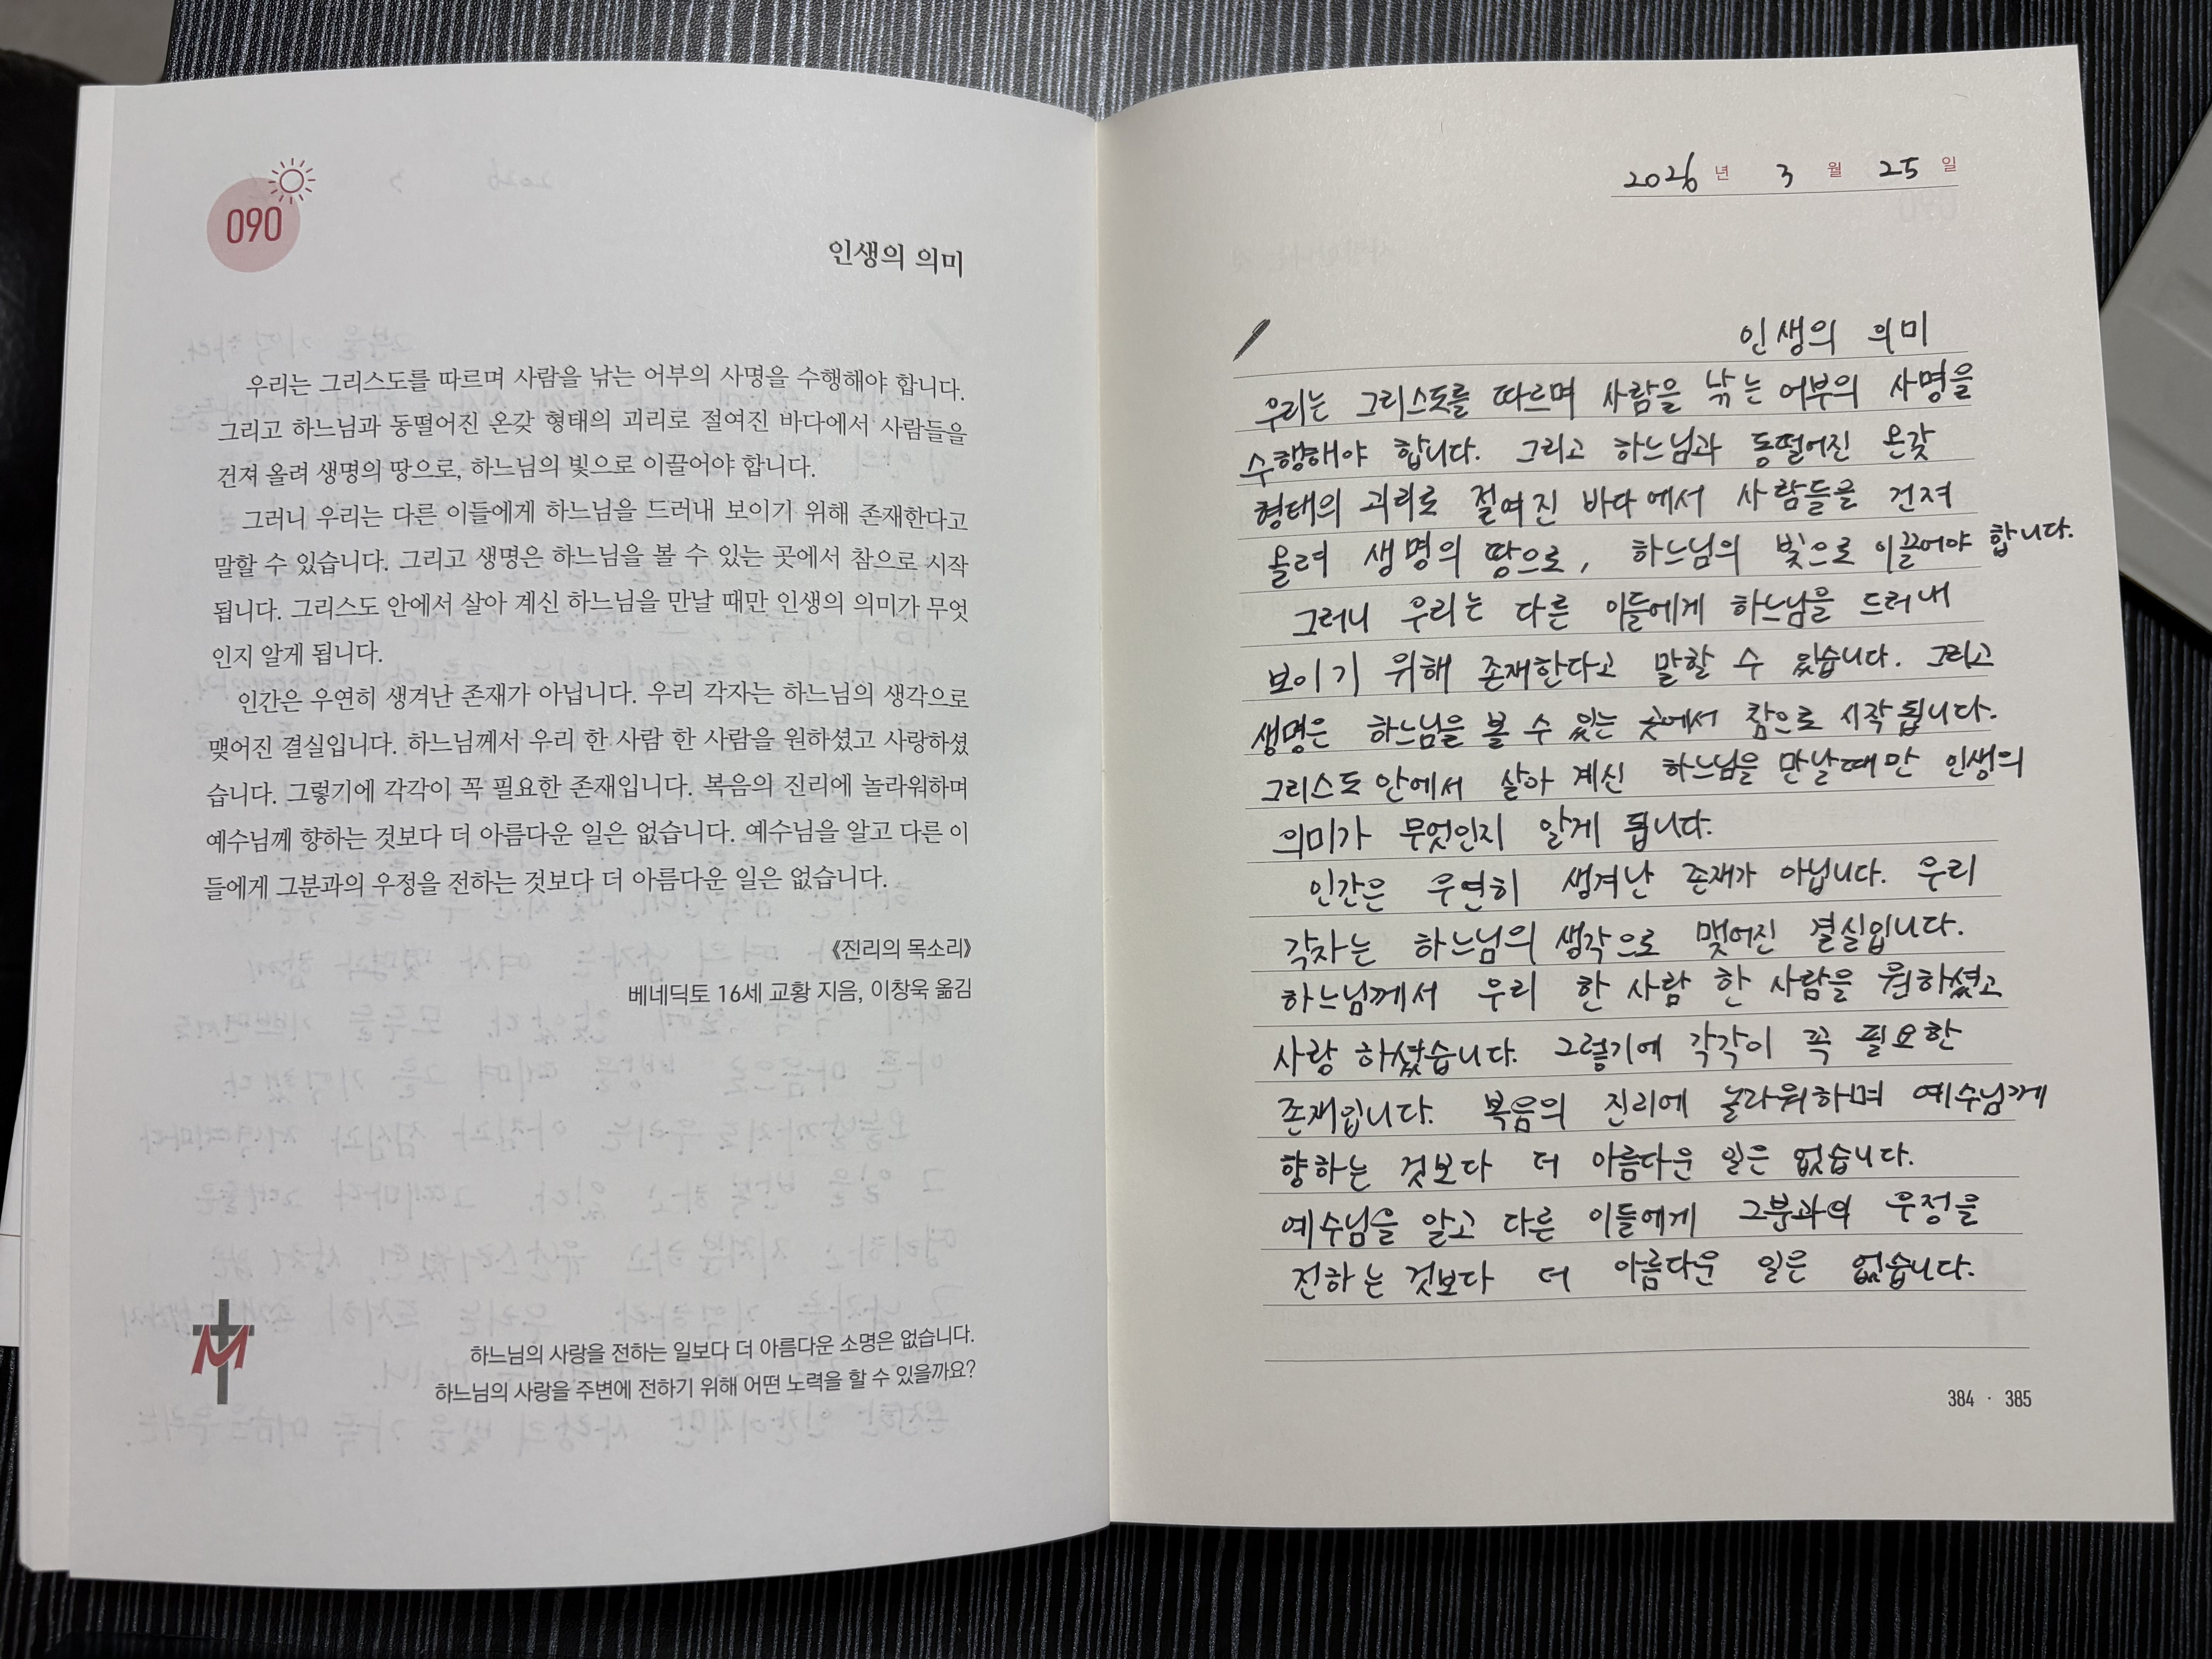 090
인생의 의미
우리는 그리스도를 따르며 사람을 낚는 어부의 사명을 수행해야 합니다.
그리고 하느님과 동떨어진 온갖 형태의 괴리로 절여진 바다에서 사람들을
건져 올려 생명의 땅으로, 하느님의 빛으로 이끌어야 합니다.
그러니 우리는 다른 이들에게 하느님을 드러내 보이기 위해 존재한다고
말할 수 있습니다. 그리고 생명은 하느님을 볼 수 있는 곳에서 참으로 시작
됩니다. 그리스도 안에서 살아 계신 하느님을 만날 때만 인생의 의미가 무엇
인지 알게 됩니다.
인간은 우연히 생겨난 존재가 아닙니다. 우리 각자는 하느님의 생각으로
맺어진 결실입니다. 하느님께서 우리 한 사람 한 사람을 원하셨고 사랑하셨
습니다. 그렇기에 각각이 꼭 필요한 존재입니다. 복음의 진리에 놀라워하며
예수님께 향하는 것보다 더 아름다운 일은 없습니다. 예수님을 알고 다른 이
들에게 그분과의 우정을 전하는 것보다 더 아름다운 일은 없습니다.
《진리의 목소리》
베네딕토 16세 교황 지음, 이창욱 옮김
하느님의 사랑을 전하는 일보다 더 아름다운 소명은 없습니다.
하느님의 사랑을 주변에 전하기 위해 어떤 노력을 할 수 있을까요?
2026 년 3 월 25 일
인생의 의미
우리는 그리스도를 따르며 사람을 낚는 어부의 사명을
수행해야 합니다. 그리고 하느님과 동떨어진 온갖
형태의 괴리로 절여진 바다에서 사람들을 건져
올려 생명의 땅으로, 하느님의 빛으로 이끌어야 합니다.
그러니 우리는 다른 이들에게 하느님을 드러내
보이기 위해 존재한다고 말할 수 있습니다. 그리고
생명은 하느님을 볼 수 있는 곳에서 참으로 시작됩니다.
그리스도 안에서 살아 계신 하느님을 만날때만 인생의
의미가 무엇인지 알게 됩니다.
인간은 우연히 생겨난 존재가 아닙니다. 우리
각자는 하느님의 생각으로 맺어진 결실입니다.
하느님께서 우리 한 사람 한 사람을 원하셨고
사랑 하셨습니다. 그렇기에 각각이 꼭 필요한
존재입니다. 복음의 진리에 놀라워하며 예수님께
향하는 것보다 더 아름다운 일은 없습니다.
예수님을 알고 다른 이들에게 그분과의 우정을
전하는 것보다 더 아름다운 일은 없습니다.
384 · 385